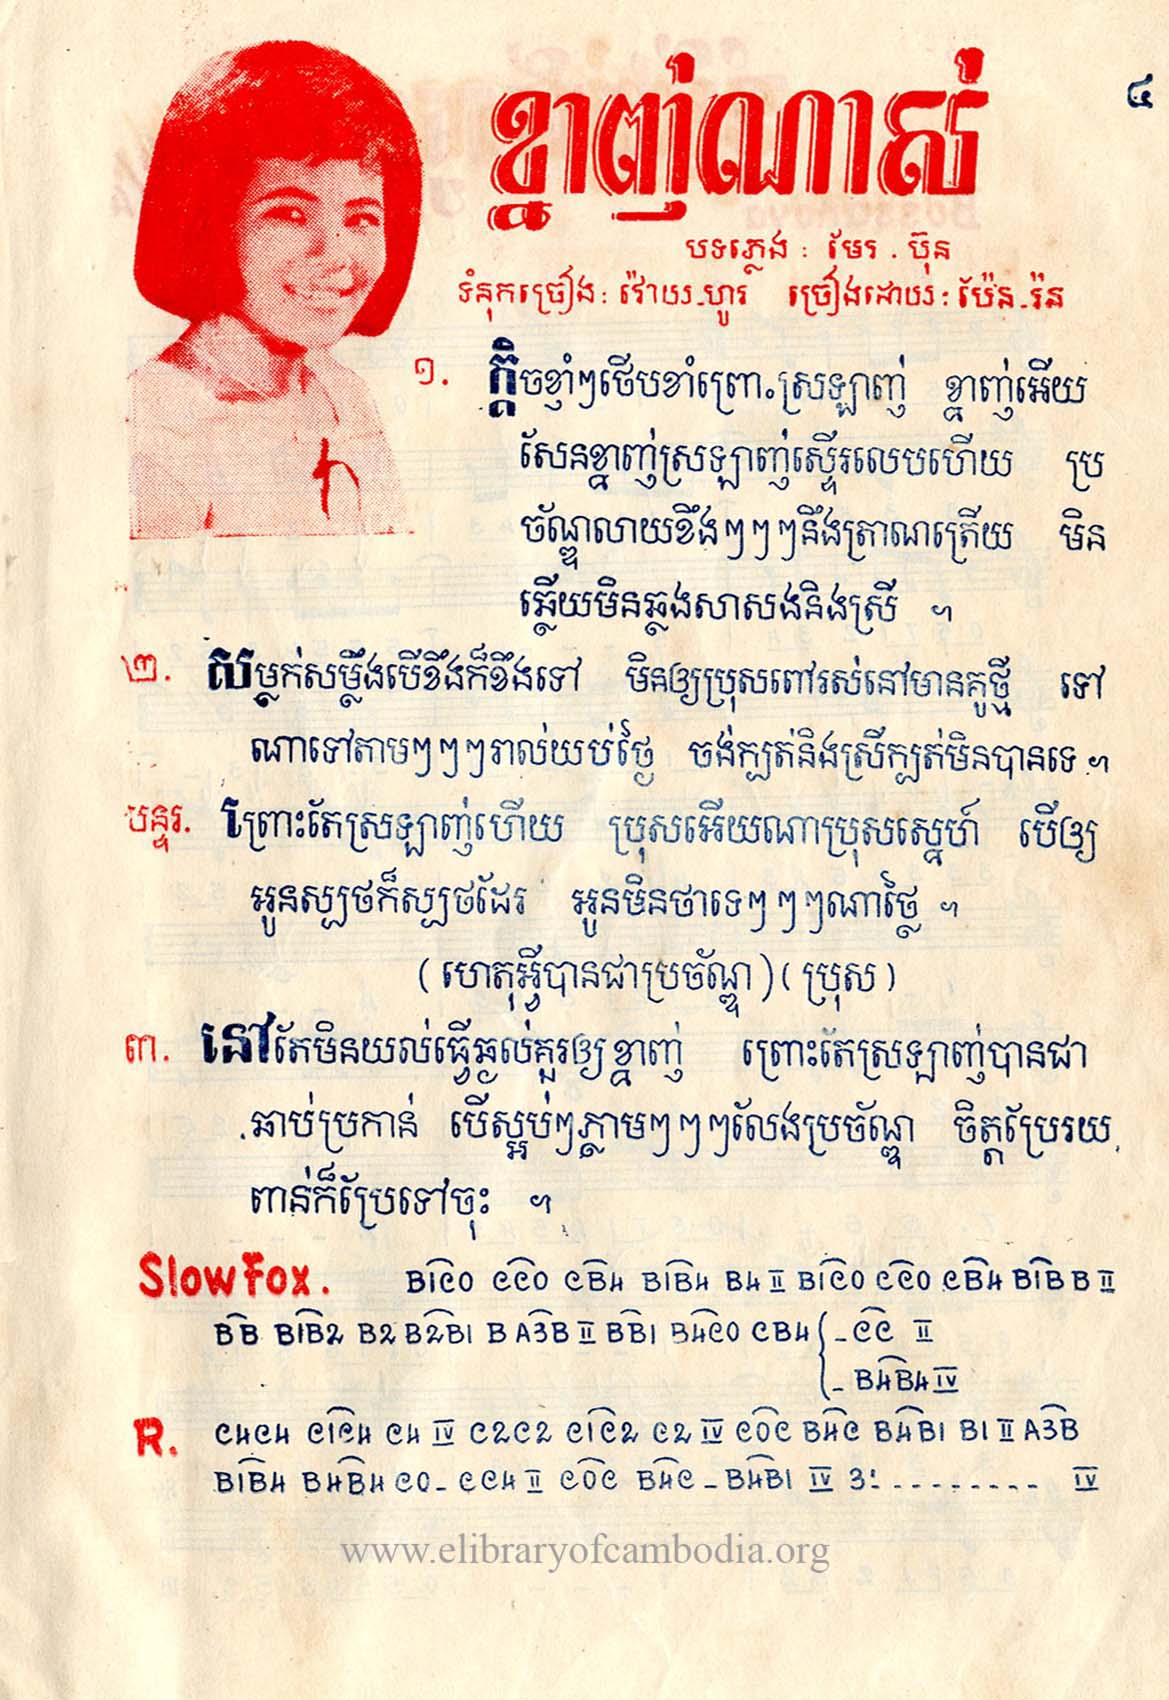 ៤
ខ្នាញ់ណាស់
បទភ្លេង : មែរ . ប៊ុន
ទំនុកច្រៀង : វ៉ោយ-ហូរ ច្រៀងដោយ : ប៉ែន-រ៉ន
១. ក្តិចខ្ញាំៗថើបខាំព្រោះស្រឡាញ់ ខ្នាញ់អើយ
សែនខ្នាញ់ស្រឡាញ់ស្ទើរលេបហើយ ប្រ
ច័ណ្ឌលាយខឹងៗៗៗនឹងត្រាណត្រើយ មិន
ឆ្លើយមិនឆ្លងសាសងនិងស្រី ។
២. សម្លក់សម្លឹងបើខឹងក៏ខឹងទៅ មិនឲ្យប្រុសពៅរស់នៅមានគូថ្មី ទៅ
ណាទៅតាមៗៗៗរាល់យប់ថ្ងៃ ចង់ក្បត់និងស្រីក្បត់មិនបានទេ ។
បន្ទរ. ព្រោះតែស្រឡាញ់ហើយ ប្រុសអើយណាប្រុសស្នេហ៍ បើឲ្យ
អូនស្បថក៏ស្បថដែរ អូនមិនថាទេៗៗៗណាថ្លៃ ។
(ហេតុអ្វីបានជាប្រច័ណ្ឌ) (ប្រុស)
៣. នៅតែមិនយល់ធ្វើឆ្ងល់គួរឲ្យខ្នាញ់ ព្រោះតែស្រឡាញ់បានជា
ឆាប់ប្រកាន់ បើស្អប់ៗភ្លាមៗៗៗលែងប្រច័ណ្ឌ ចិត្តប្រែរយ
ពាន់ក៏ប្រែទៅចុះ ។
Slow Fox. B1C0 CC0 CB4 B1B4 B4 II B1C0 CC0 CB4 B1B B II
BB B1B2 B2 B2B1 B A3B II BB1 B4C0 CB4 { - CC II
- B4B4 IV
R. C4C4 C1C4 C4 IV C2C2 C1C2 C2 IV C0C B4C B4B1 B1 II A3B
B1B4 B4B4 C0- CC4 II C0C B4C - B4B1 IV 3: - - - - - - - - IV
www.elibraryofcambodia.org